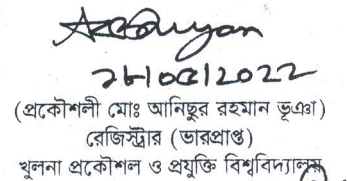 ২৮/০৫/2022
(প্রকৌশলী মোঃ আনিছুর রহমান ভূঞা)
রেজিস্ট্রার (ভারপ্রাপ্ত)
খুলনা প্রকৌশল ও প্রযুক্তি বিশ্ববিদ্যালয়